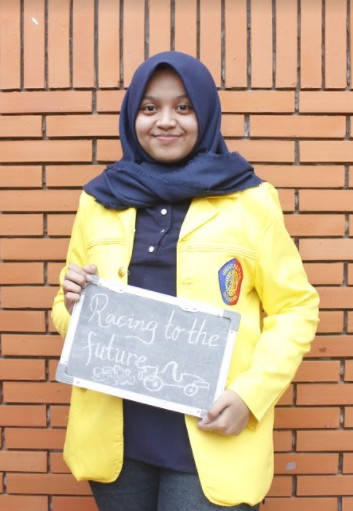 Racing to the
future